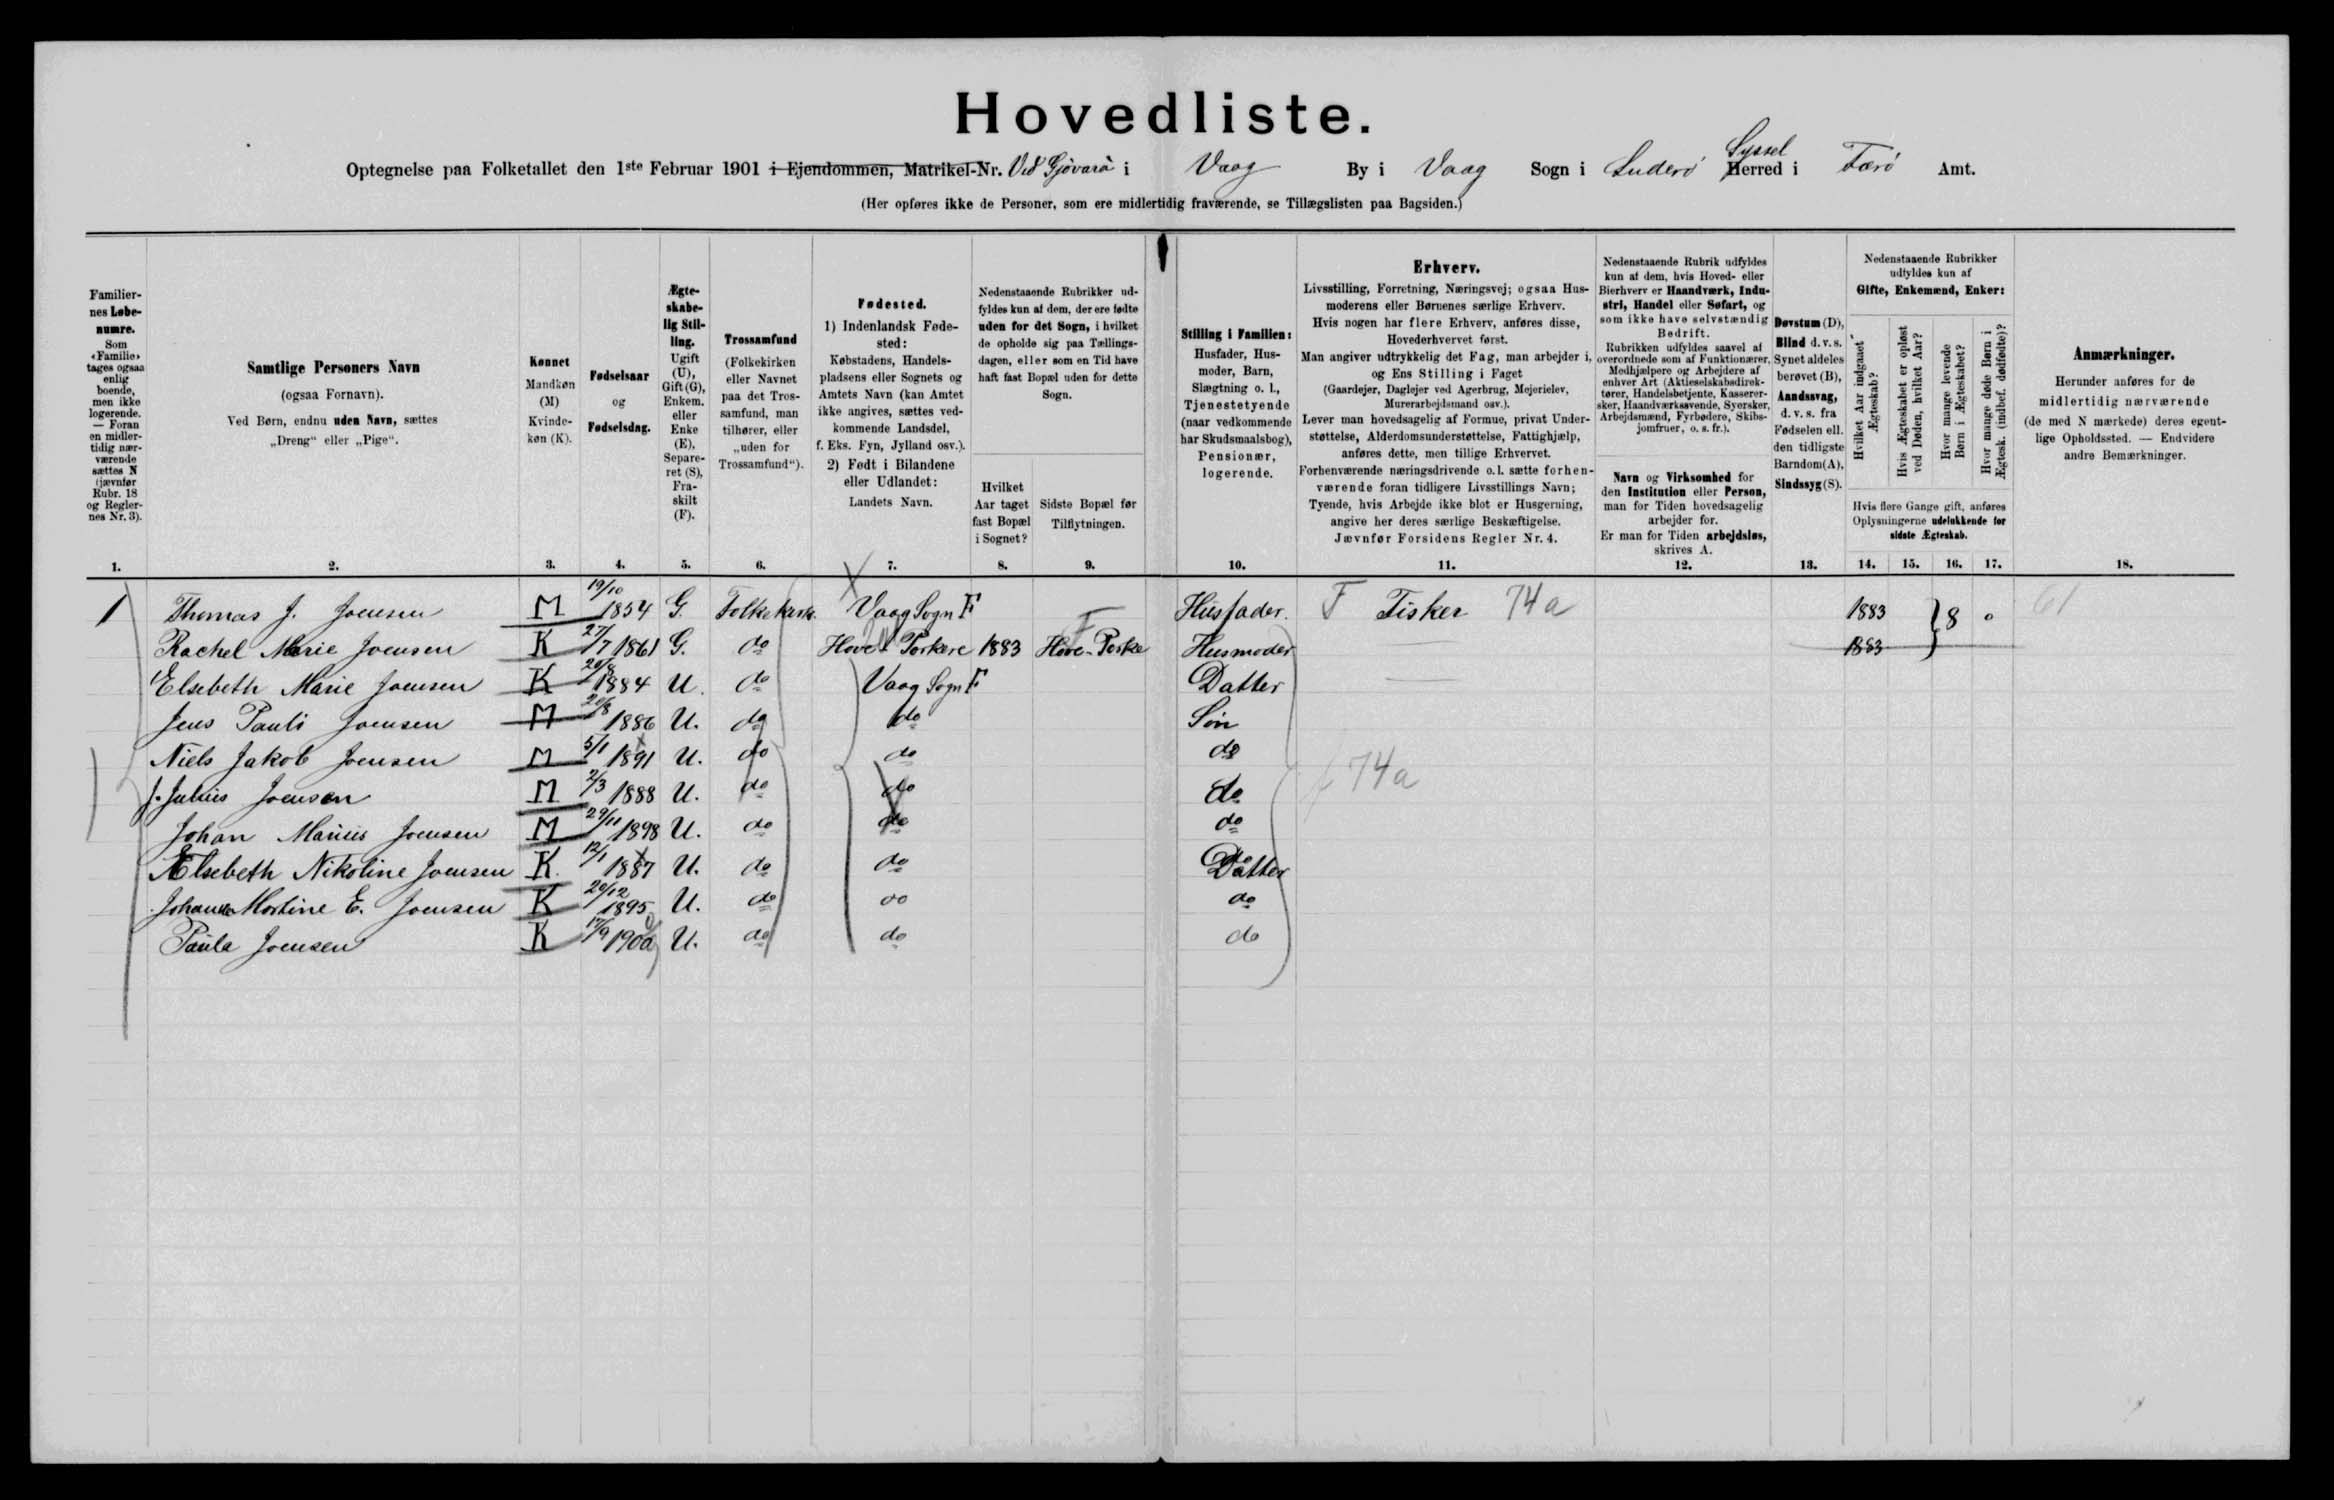 Hovedliste.
Optegnelse paa Folketallet den 1ste Februar 1901 i Ejendommen, Matrikel-Nr. Ved Gjövarå i Vaag By i Vaag Sogn i Suderö Syssel Herred i Færö Amt.
(Her opføres ikke de Personer, som ere midlertidig fraværende, se Tillægslisten paa Bagsiden.)
Familier-
nes Løbe-
numre.
Som
«Familie»
tages ogsaa
enlig
boende,
men ikke
logerende.
— Foran
en midler-
tidig nær-
værende
sættes N
(jævnfør
Rubr. 18
og Regler-
nes Nr. 3).
Samtlige Personers Navn
(ogsaa Fornavn).
Ved Børn, endnu uden Navn, sættes
„Dreng“ eller „Pige“.
Kønnet
Mandkøn
(M)
Kvinde-
køn (K).
Fødselsaar
og
Fødselsdag.
Ægte-
skabe-
lig Stil-
ling.
Ugift
(U),
Gift (G),
Enkem.
eller
Enke
(E),
Separe-
ret (S),
Fra-
skilt
(F).
Trossamfund
(Folkekirken
eller Navnet
paa det Tros-
samfund, man
tilhører, eller
„uden for
Trossamfund“).
Fødested.
1) Indenlandsk Føde-
sted:
Købstadens, Handels-
pladsens eller Sognets og
Amtets Navn (kan Amtet
ikke angives, sættes ved-
kommende Landsdel,
f. Eks. Fyn, Jylland osv.).
2) Født i Bilandene
eller Udlandet:
Landets Navn.
Nedenstaaende Rubrikker ud-
fyldes kun af dem, der ere fødte
uden for det Sogn, i hvilket
de opholde sig paa Tællings-
dagen, eller som en Tid have
haft fast Bopæl uden for dette
Sogn.
Hvilket
Aar taget
fast Bopæl
i Sognet?
Sidste Bopæl før
Tilflytningen.
Stilling i Familien:
Husfader, Hus-
moder, Barn,
Slægtning o. l.,
Tjenestetyende
(naar vedkommende
har Skudsmaalsbog),
Pensionær,
logerende.
Erhverv.
Livsstilling, Forretning, Næringsvej; ogsaa Hus-
moderens eller Børnenes særlige Erhverv.
Hvis nogen har flere Erhverv, anføres disse,
Hovederhvervet først.
Man angiver udtrykkelig det Fag, man arbejder i,
og Ens Stilling i Faget
(Gaardejer, Daglejer ved Agerbrug, Mejerielev,
Murerarbejdsmand osv.).
Lever man hovedsagelig af Formue, privat Under-
støttelse, Alderdomsunderstøttelse, Fattighjælp,
anføres dette, men tillige Erhvervet.
Forhenværende næringsdrivende o. l. sætte forhen-
værende foran tidligere Livsstillings Navn;
Tyende, hvis Arbejde ikke blot er Husgerning,
angive her deres særlige Beskæftigelse.
Jævnfør Forsidens Regler Nr. 4.
Nedenstaaende Rubrik udfyldes
kun af dem, hvis Hoved- eller
Bierhverv er Haandværk, Indu-
stri, Handel eller Søfart, og
som ikke have selvstændig
Bedrift.
Rubrikken udfyldes saavel af
overordnede som af Funktionærer,
Medhjælpere og Arbejdere af
enhver Art (Aktieselskabsdirek-
tører, Handelsbetjente, Kasserer-
sker, Haandværkssvende, Syersker,
Arbejdsmænd, Fyrbødere, Skibs-
jomfruer, o. s. fr.).
Navn og Virksomhed for
den Institution eller Person,
man for Tiden hovedsagelig
arbejder for.
Er man for Tiden arbejdsløs,
skrives A.
Døvstum (D),
Blind d. v. s.
Synet aldeles
berøvet (B),
Aandssvag,
d. v. s. fra
Fødselen ell.
den tidligste
Barndom (A),
Sindssyg (S).
Nedenstaaende Rubrikker
udfyldes kun af
Gifte, Enkemænd, Enker:
Hvilket Aar indgaaet
Ægteskab?
Hvis Ægteskabet er opløst
ved Døden, hvilket Aar?
Hvor mange levende
Børn i Ægteskabet?
Hvor mange døde Børn i
Ægtesk. (indbef. dødfødte)?
Hvis flere Gange gift, anføres
Oplysningerne udelukkende for
sidste Ægteskab.
Anmærkninger.
Herunder anføres for de
midlertidig nærværende
(de med N mærkede) deres egent-
lige Opholdssted. — Endvidere
andre Bemærkninger.
1. 2. 3. 4. 5. 6. 7. 8. 9. 10. 11. 12. 13. 14. 15. 16. 17. 18.
1 Thomas J. Joensen M 19/10 1854 G. Folkekirk. Vaag Sogn F Husfader. F Fisker 74a 1883 8 0 61
Rachel Marie Joensen K 27/7 1861 G. do Hove Porkere 1883 Hove-Porke Husmoder 1883
Elsebeth Marie Joensen K 20/8 1884 U. do Vaag Sogn F Datter
Jens Pauli Joensen M 20/8 1886 U. do do Sön
Niels Jakob Joensen M 5/1 1891 U. do do do
J. Julius Joensen M 2/3 1888 U. do do do 74a
Johan Marius Joensen M 29/11 1898 U. do do do
Elsebeth Nikoline Joensen K. 12/1 1887 U. do do Datter
Johanna Mortine E. Joensen K 20/12 1895 U. do do do
Paula Joensen K 17/9 1900 U. do do do